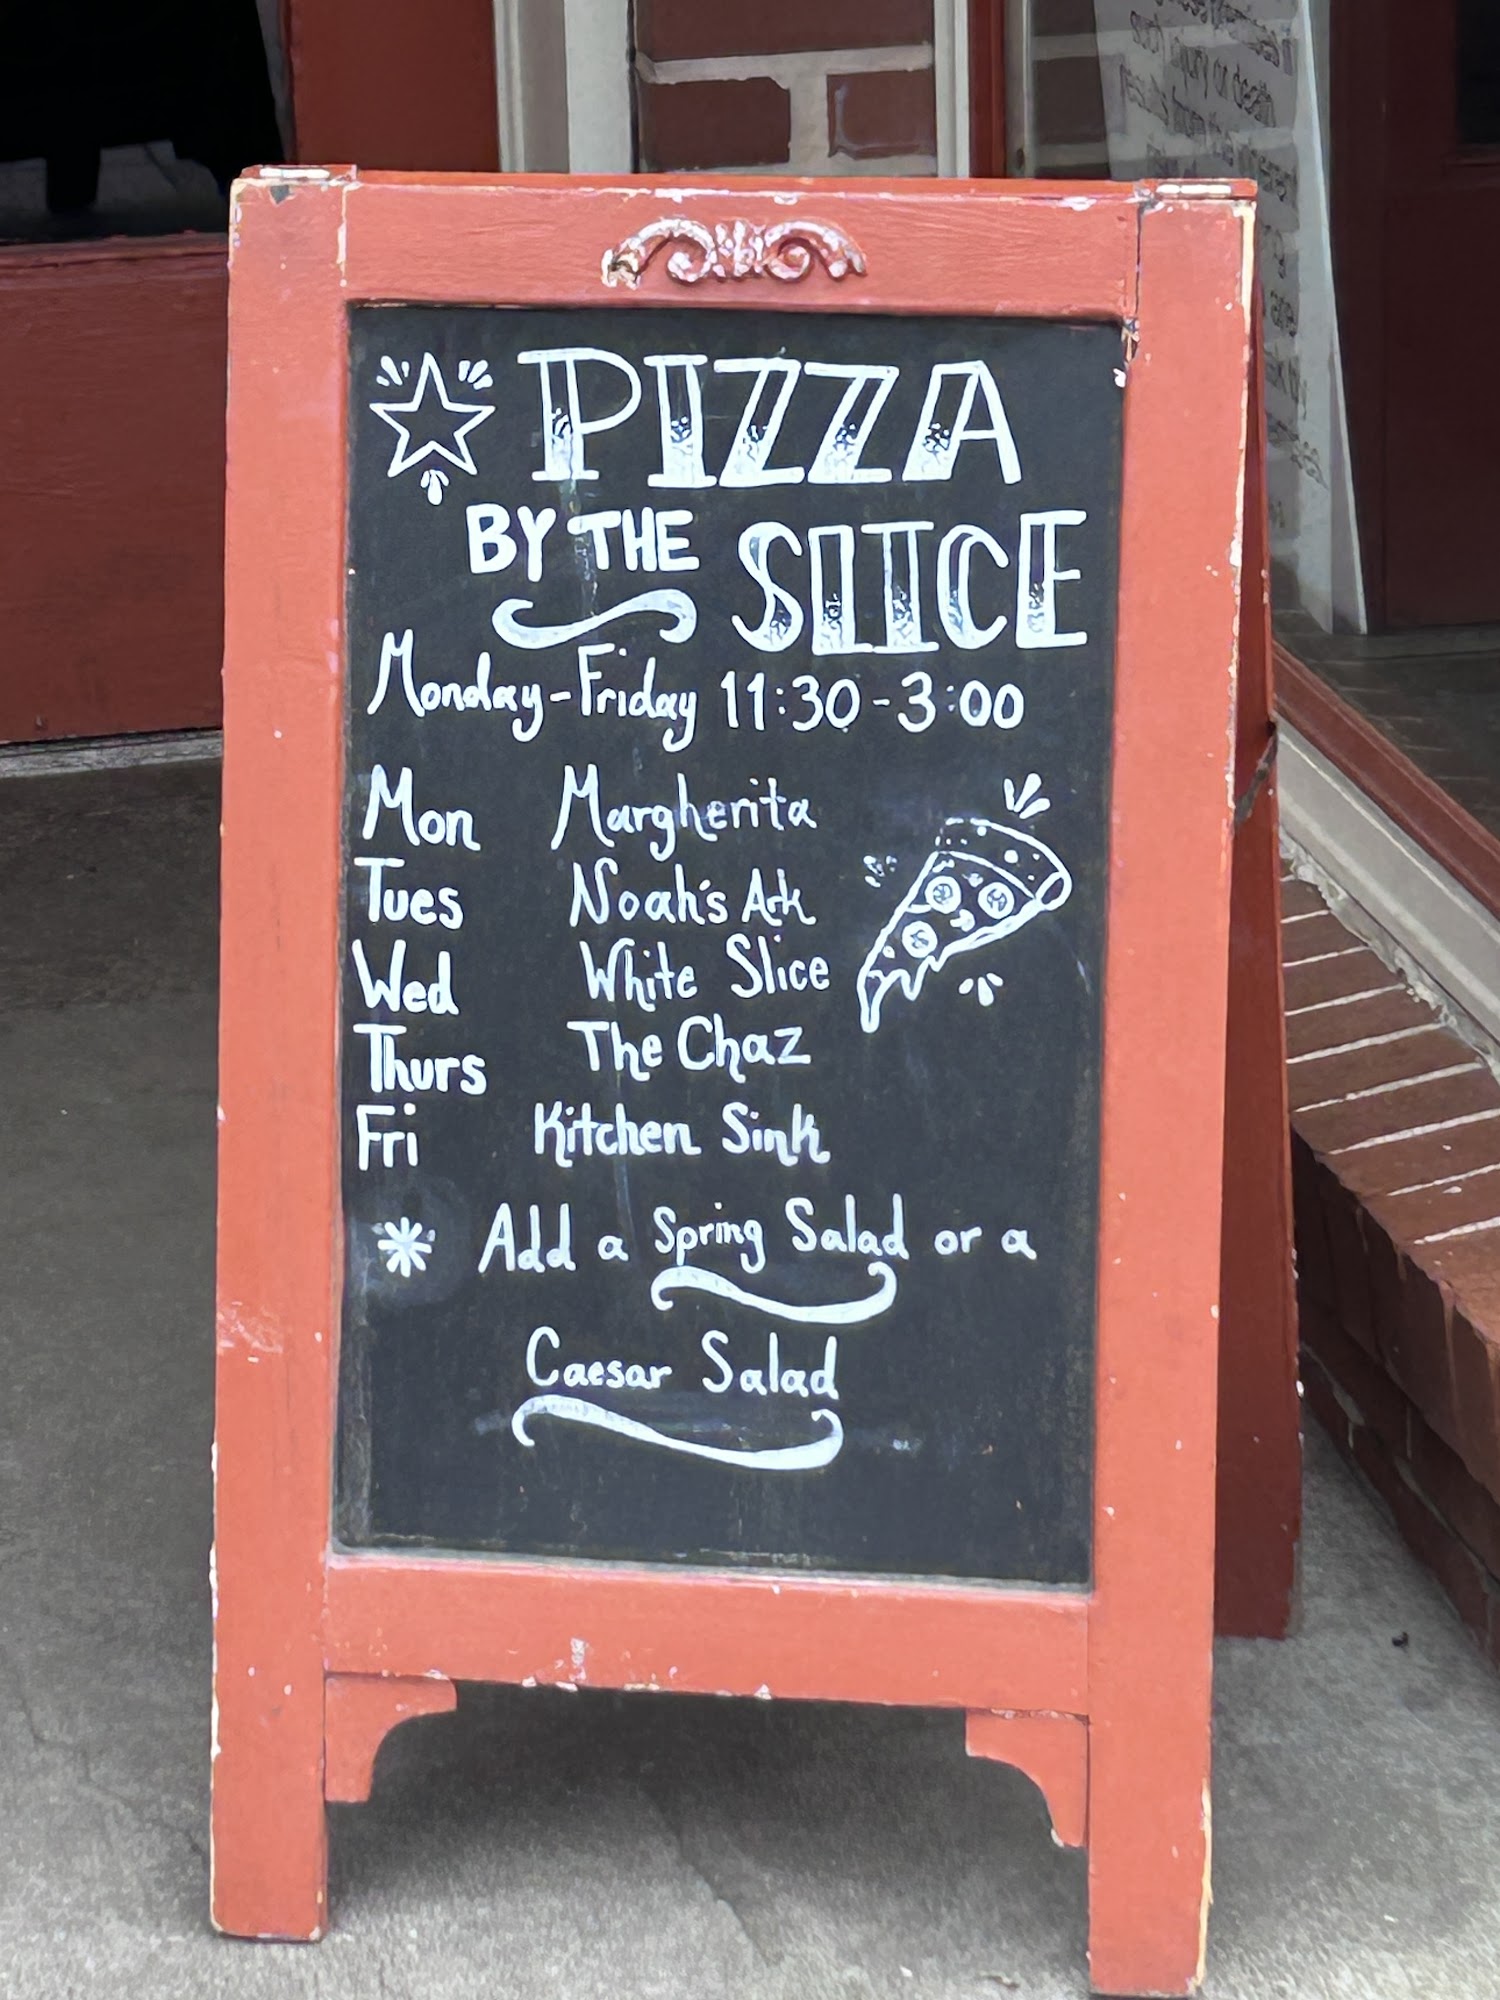 PIZZA
BY THE SLICE
Monday-Friday 11:30-3:00
Mon Margherita
Tues Noah's Ark
Wed White Slice
Thurs The Chaz
Fri Kitchen Sink
* Add a Spring Salad or a
Caesar Salad